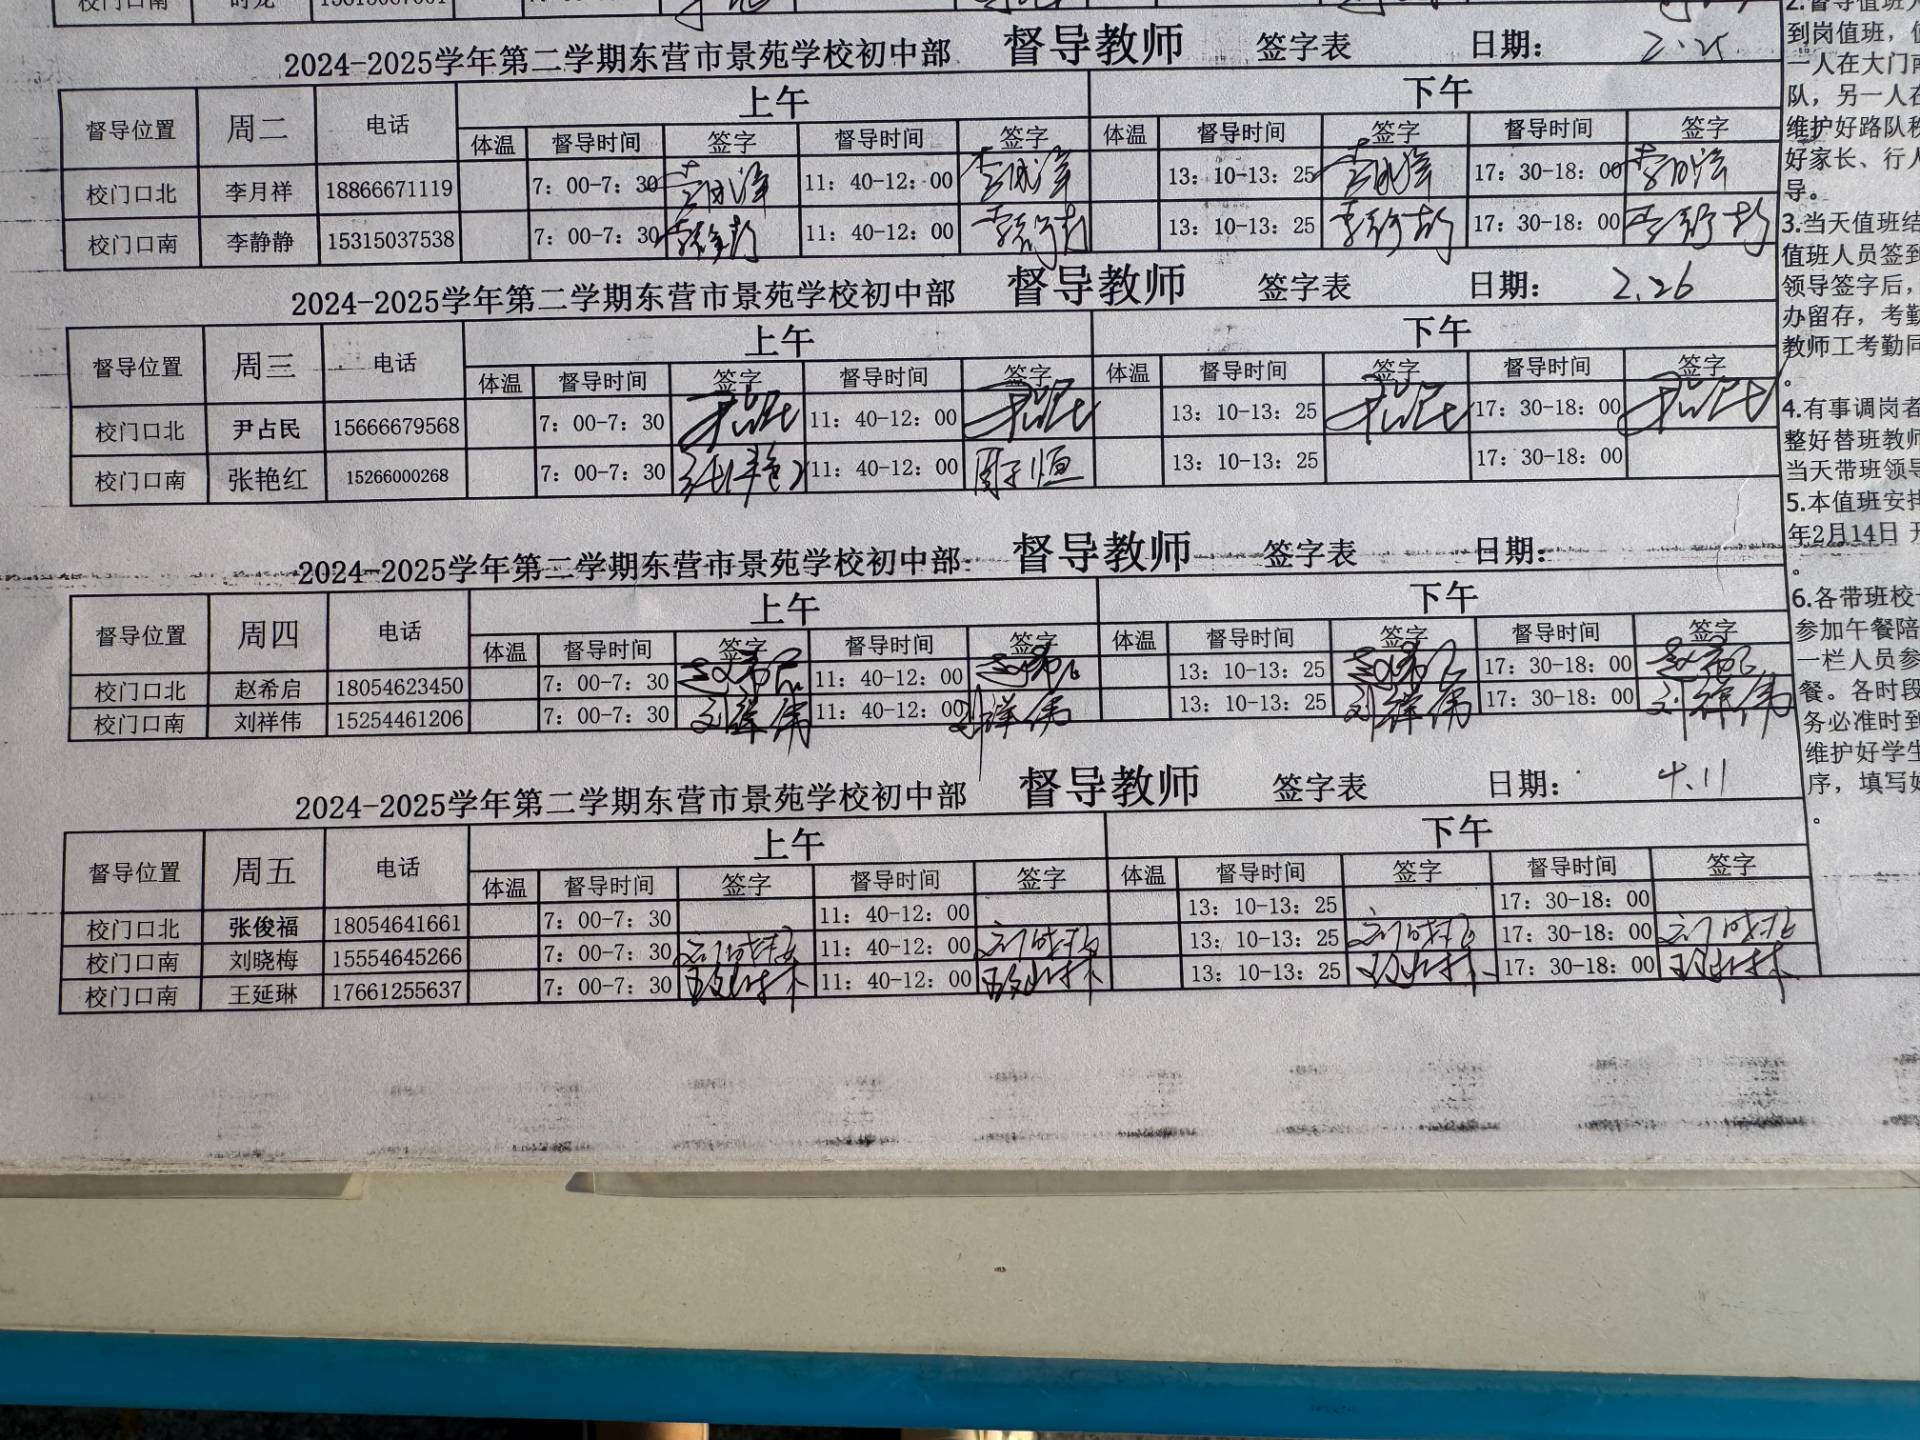 校门口南
2024-2025学年第二学期东营市景苑学校初中部 督导教师 签字表 日期： 2.25
督导位置 周二 电话 上午 下午
体温 督导时间 签字 督导时间 签字 体温 督导时间 签字 督导时间 签字
校门口北 李月祥 18866671119 7：00-7：30 11：40-12：00 13：10-13：25 17：30-18：00
校门口南 李静静 15315037538 7：00-7：30 11：40-12：00 13：10-13：25 17：30-18：00
2024-2025学年第二学期东营市景苑学校初中部 督导教师 签字表 日期： 2.26
督导位置 周三 电话 上午 下午
体温 督导时间 签字 督导时间 签字 体温 督导时间 签字 督导时间 签字
校门口北 尹占民 15666679568 7：00-7：30 尹占民 11：40-12：00 尹占民 13：10-13：25 尹占民 17：30-18：00 尹占民
校门口南 张艳红 15266000268 7：00-7：30 张艳红 11：40-12：00 周子恒 13：10-13：25 17：30-18：00
2024-2025学年第二学期东营市景苑学校初中部 督导教师 签字表 日期：
督导位置 周四 电话 上午 下午
体温 督导时间 签字 督导时间 签字 体温 督导时间 签字 督导时间 签字
校门口北 赵希启 18054623450 7：00-7：30 赵希启 11：40-12：00 赵希启 13：10-13：25 赵希启 17：30-18：00 赵希启
校门口南 刘祥伟 15254461206 7：00-7：30 刘祥伟 11：40-12：00 刘祥伟 13：10-13：25 刘祥伟 17：30-18：00 刘祥伟
2024-2025学年第二学期东营市景苑学校初中部 督导教师 签字表 日期： 4.11
督导位置 周五 电话 上午 下午
体温 督导时间 签字 督导时间 签字 体温 督导时间 签字 督导时间 签字
校门口北 张俊福 18054641661 7：00-7：30 11：40-12：00 13：10-13：25 17：30-18：00
校门口南 刘晓梅 15554645266 7：00-7：30 11：40-12：00 13：10-13：25 17：30-18：00
校门口南 王延琳 17661255637 7：00-7：30 王延琳 11：40-12：00 王延琳 13：10-13：25 王延琳 17：30-18：00 王延琳
2.督导值班
到岗值班，
一人在大门南
队，另一人在
维护好路队秩
好家长、行人
导。
3.当天值班结
值班人员签到
领导签字后，
办留存，考勤
教师工考勤同
。
4.有事调岗者
整好替班教师
当天带班领导
5.本值班安排
年2月14日 开
。
6.各带班校
参加午餐陪
一栏人员参
餐。各时段
务必准时到
维护好学生
序，填写好
。